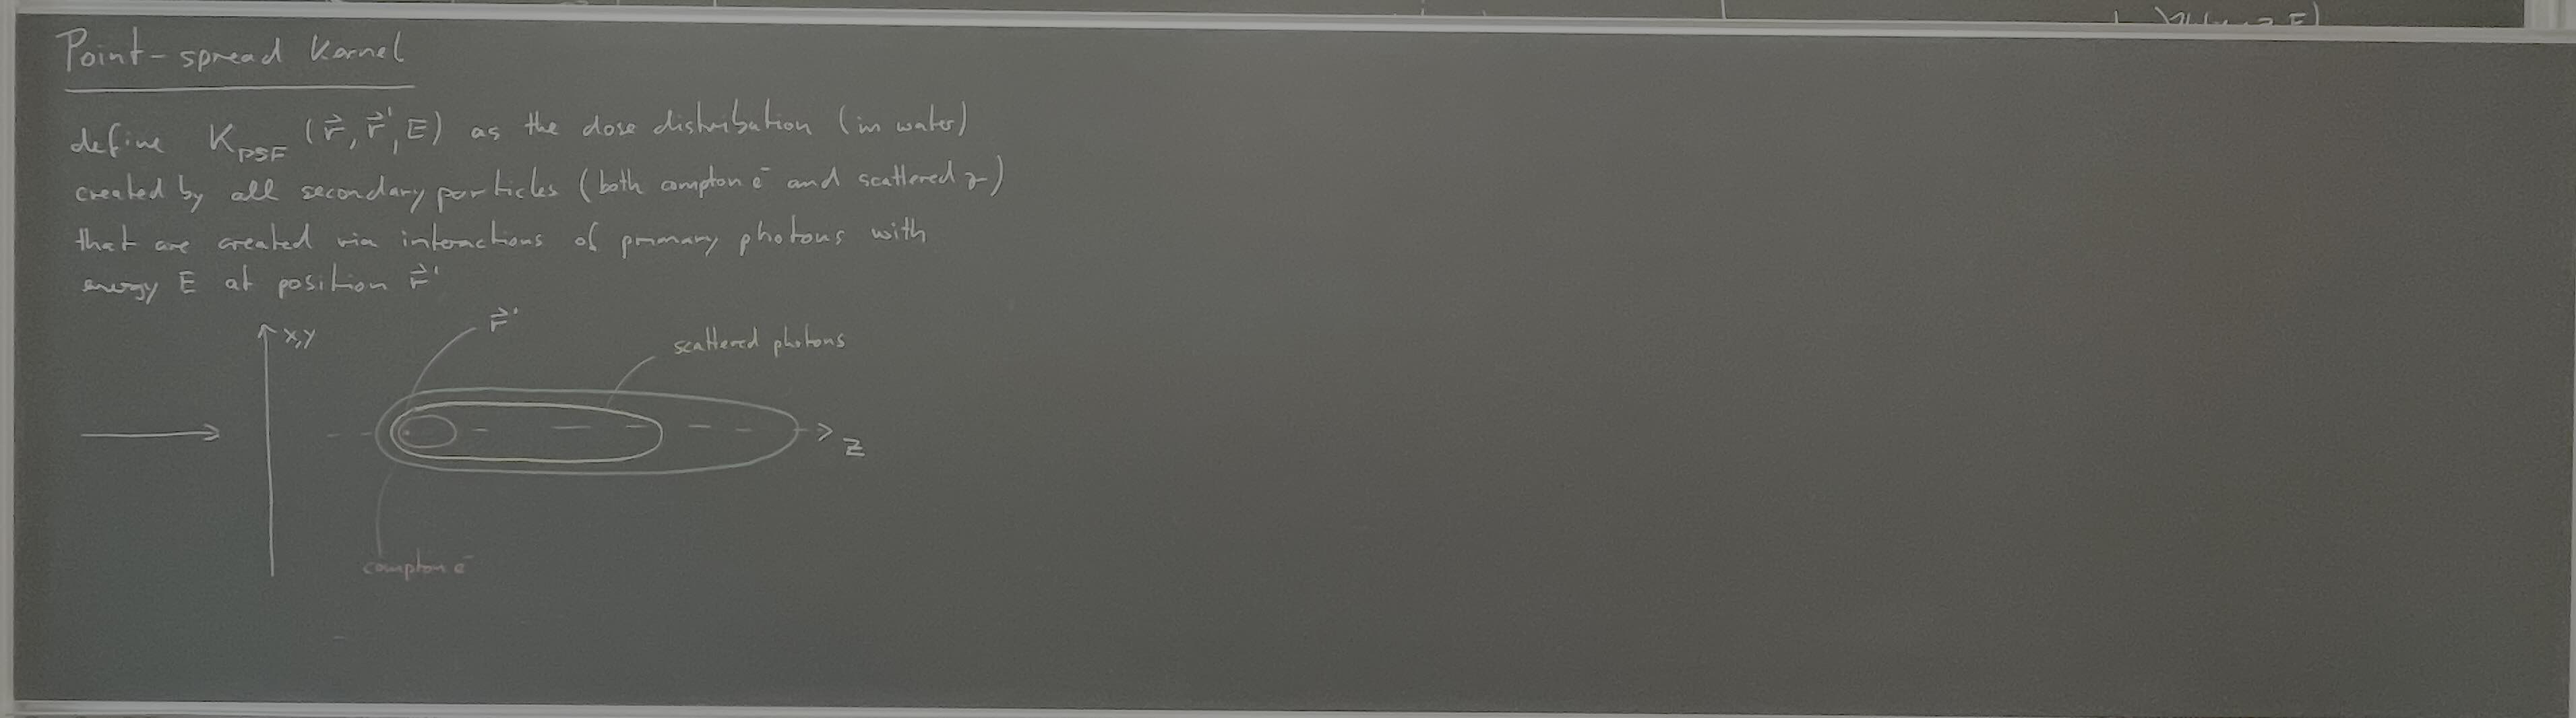 Point-spread Kernel
define K_PSF (r⃗, r⃗', E) as the dose distribution (in water)
created by all secondary particles (both compton e⁻ and scattered γ)
that are created via interactions of primary photons with
energy E at position r⃗'
r⃗'
x,y
scattered photons
z
compton e⁻